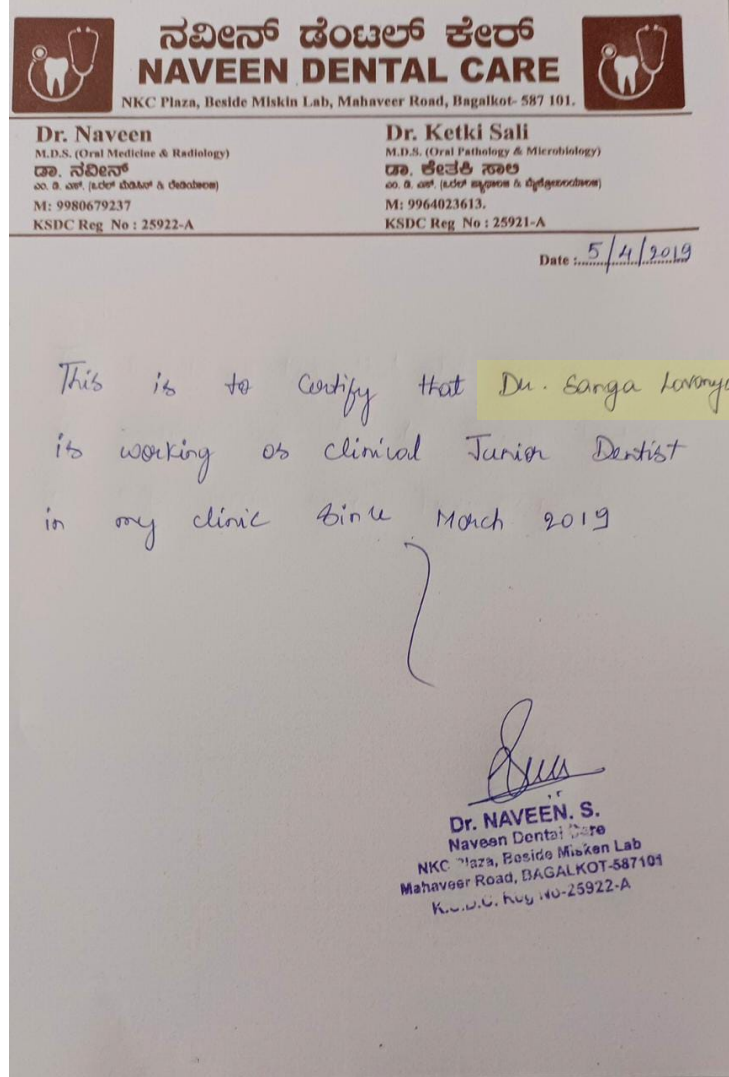 ನವೀನ್ ಡೆಂಟಲ್ ಕೇರ್
NAVEEN DENTAL CARE
NKC Plaza, Beside Miskin Lab, Mahaveer Road, Bagalkot- 587 101.
Dr. Naveen
M.D.S. (Oral Medicine & Radiology)
ಡಾ. ನವೀನ್
ಎಂ. ಡಿ. ಎಸ್. (ಓರಲ್ ಮೆಡಿಸಿನ್ & ರೇಡಿಯೋಲಾಜಿ)
M: 9980679237
KSDC Reg No : 25922-A
Dr. Ketki Sali
M.D.S. (Oral Pathology & Microbiology)
ಡಾ. ಕೇತಕಿ ಸಾಲಿ
ಎಂ. ಡಿ. ಎಸ್. (ಓರಲ್ & ಮೈಕ್ರೋಬಯಾಲಾಜಿ)
M: 9964023613.
KSDC Reg No : 25921-A
Date : 5/4/2019
This is to certify that Dr. Sanga Lavanya
is working as clinical Junior Dentist
in my clinic since March 2019
Dr. NAVEEN. S.
Naveen Dental Care
NKC Plaza, Beside Misken Lab
Mahaveer Road, BAGALKOT-587101
K.S.D.C. Reg No-25922-A